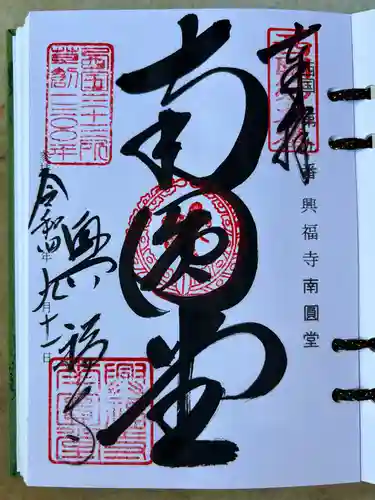 奉拝
西国第九番興福寺南圓堂
南圓堂
西国三十三所
草創一三〇〇年
令和四年九月十一日
興福寺